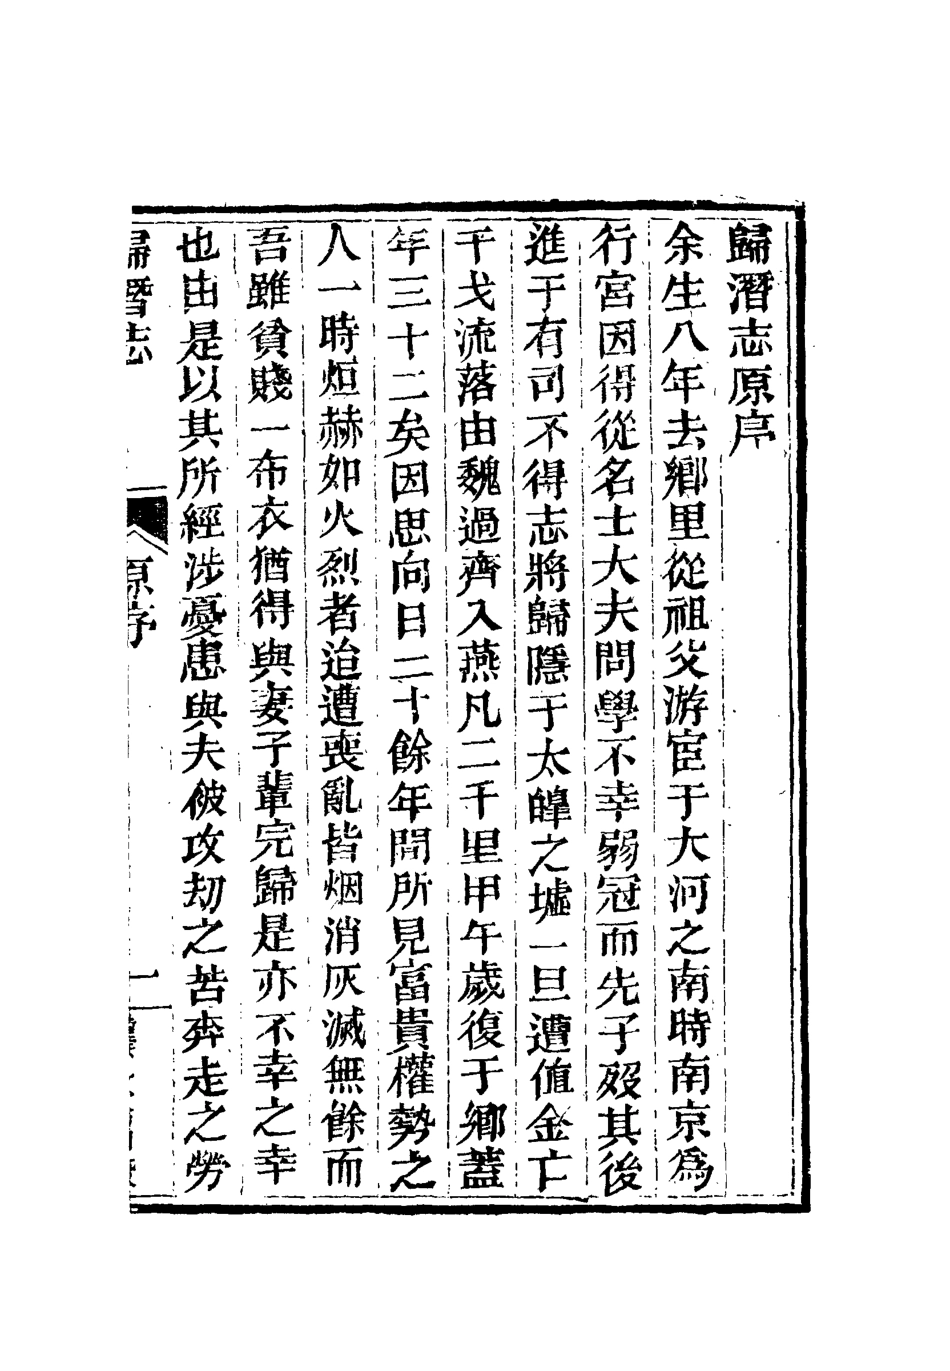 歸潛志原序
余生八年去鄉里從祖父游宦于大河之南時南京爲
行宮因得從名士大夫問學不幸弱冠而先子歿其後
進于有司不得志將歸隱于太皥之墟一旦遭值金亡
干戈流落由魏過齊入燕凡二千里甲午歲復于鄉蓋
年三十二矣因思向日二十餘年間所見富貴權勢之
人一時烜赫如火烈者迨遭喪亂皆烟消灰滅無餘而
吾雖貧賤一布衣猶得與妻子輩完歸是亦不幸之幸
也由是以其所經涉憂患與夫被攻劫之苦奔走之勞
歸潛志 原序 一